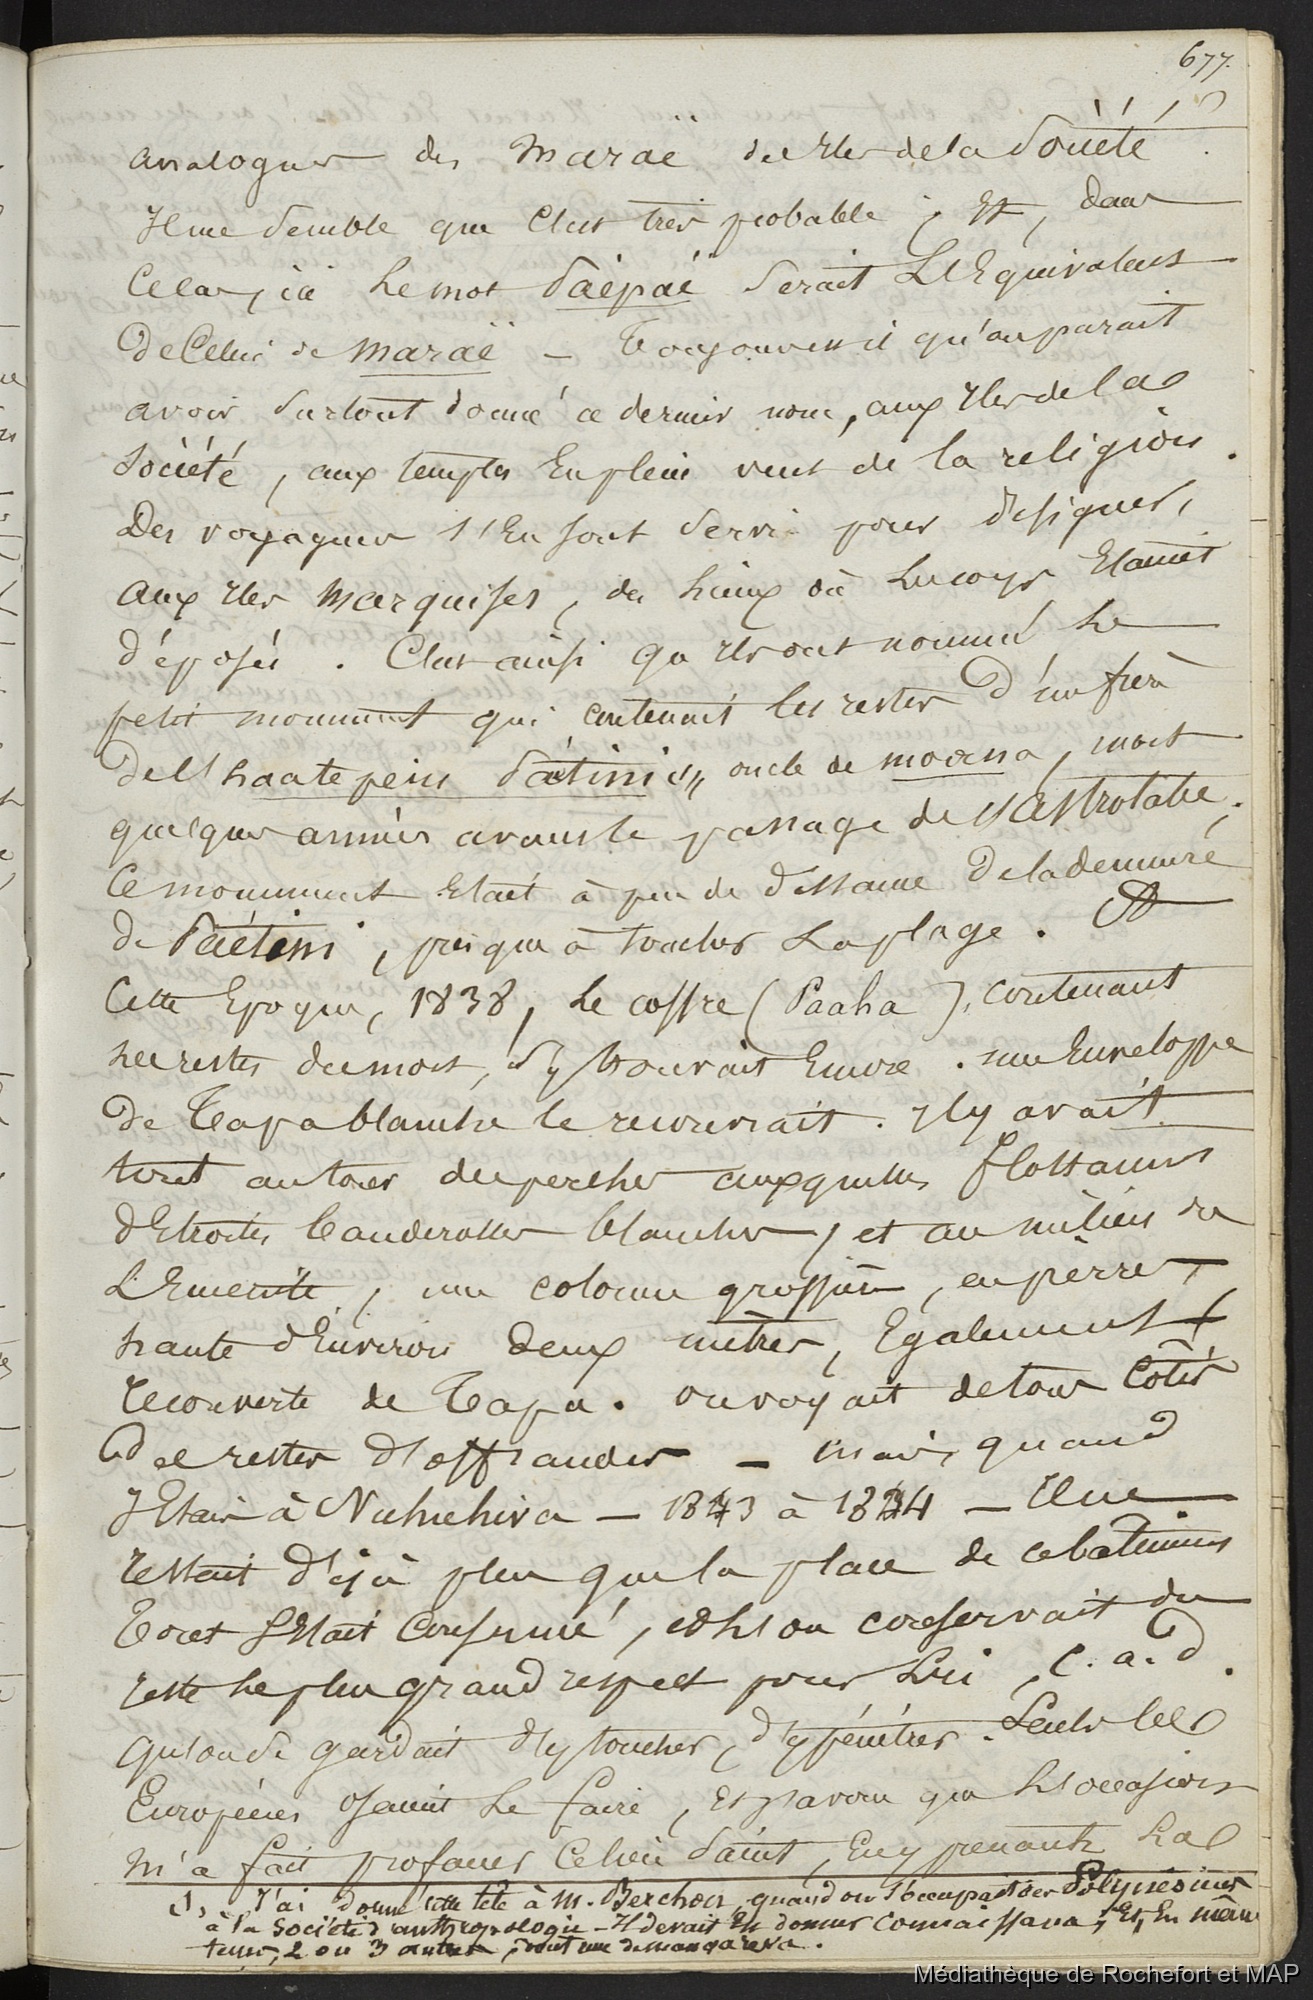 677.
analogues des maraë des Iles de la Société.
Il me semble que c'est très probable ; Et, dans
ce cas, ici le mot Paépaé serait l'Equivalent
de Celui de maraë — Toujours est il qu'on parait
avoir surtout donné ce dernier nom, aux Iles de la
Société, aux temples En plein vent de la religion.
Des voyageurs s'En sont servi pour désigner,
aux Iles Marquises, des lieux où les corps Etaient
déposés. C'est ainsi qu'ils ont nommé le
petit monument qui contenait les restes d'un frère
de l'haatepeiu Paëtini, oncle de moana, mort
quelques années avant le passage de l'Astrolabe.
Ce monument Etait à peu de distance de la demeure
de Paëtini, presque à toucher la plage. A
Cette Epoque, 1838, le coffre (Paaha), contenant
les restes du mort, s'y trouvait Encore. une Enveloppe
de Tapa blanche le recouvrait. Il y avait
tout autour des perches auxquelles flottaient
d'Etroites banderolles blanches, et au milieu de
l'Enceinte, une colonne grossière, en pierre,
haute d'Environ deux mètres, Egalement
recouverte de Tapa. on voyait de tous Côtés
des restes d'offrandes — mais, quand
j'Etais à Nuhuhiva — 1843 à 1844 — Il ne
restait déjà plus que la place de ce batiment
Tout s'Etait consumé, et l'on conservait du
reste le plus grand respect pour lui, c. a. d.
qu'on se gardait d'y toucher, d'y pénétrer. Seuls les
Européens osaient le faire, Et j'avoue que l'occasion
m'a fait profaner ce lieu saint, En y prenant la
(1) J'ai donné cette tête à M. Berchon, quand on s'occupait des Polynésiens
à la Société d'anthropologie — Il devait En donner connaissance, Et, En même
temps, 2 ou 3 autres, dont une de mangareva.
Médiathèque de Rochefort et MAP